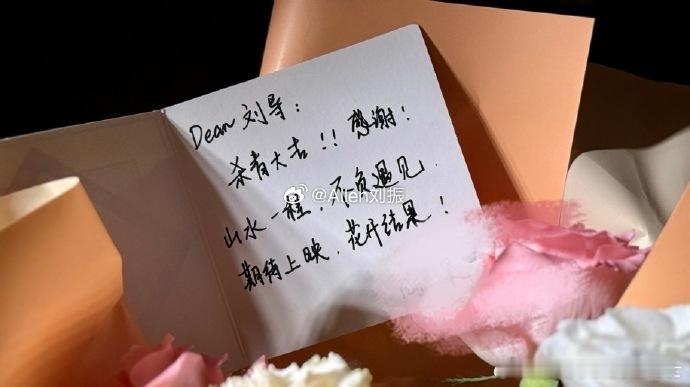 Dear 刘导：
杀青大吉!! 感谢!
山水一程，不负遇见.
期待上映，花开结果!
@Allen刘振